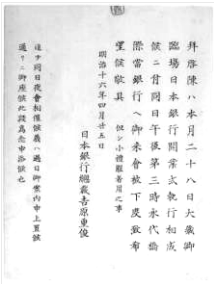 拜啓陳ハ本月二十八日大藏卿
臨場日本銀行開業式執行相成
候ニ付同日午後第三時永代橋
際當銀行ヘ御来會被下度致希
望候敬具 但シ小禮服着用之事
明治十六年四月廿五日
日本銀行總裁吉原重俊
追テ同日夜會相催候義ハ過日御案内申上置候
通リニ御座候此段為念申添候也